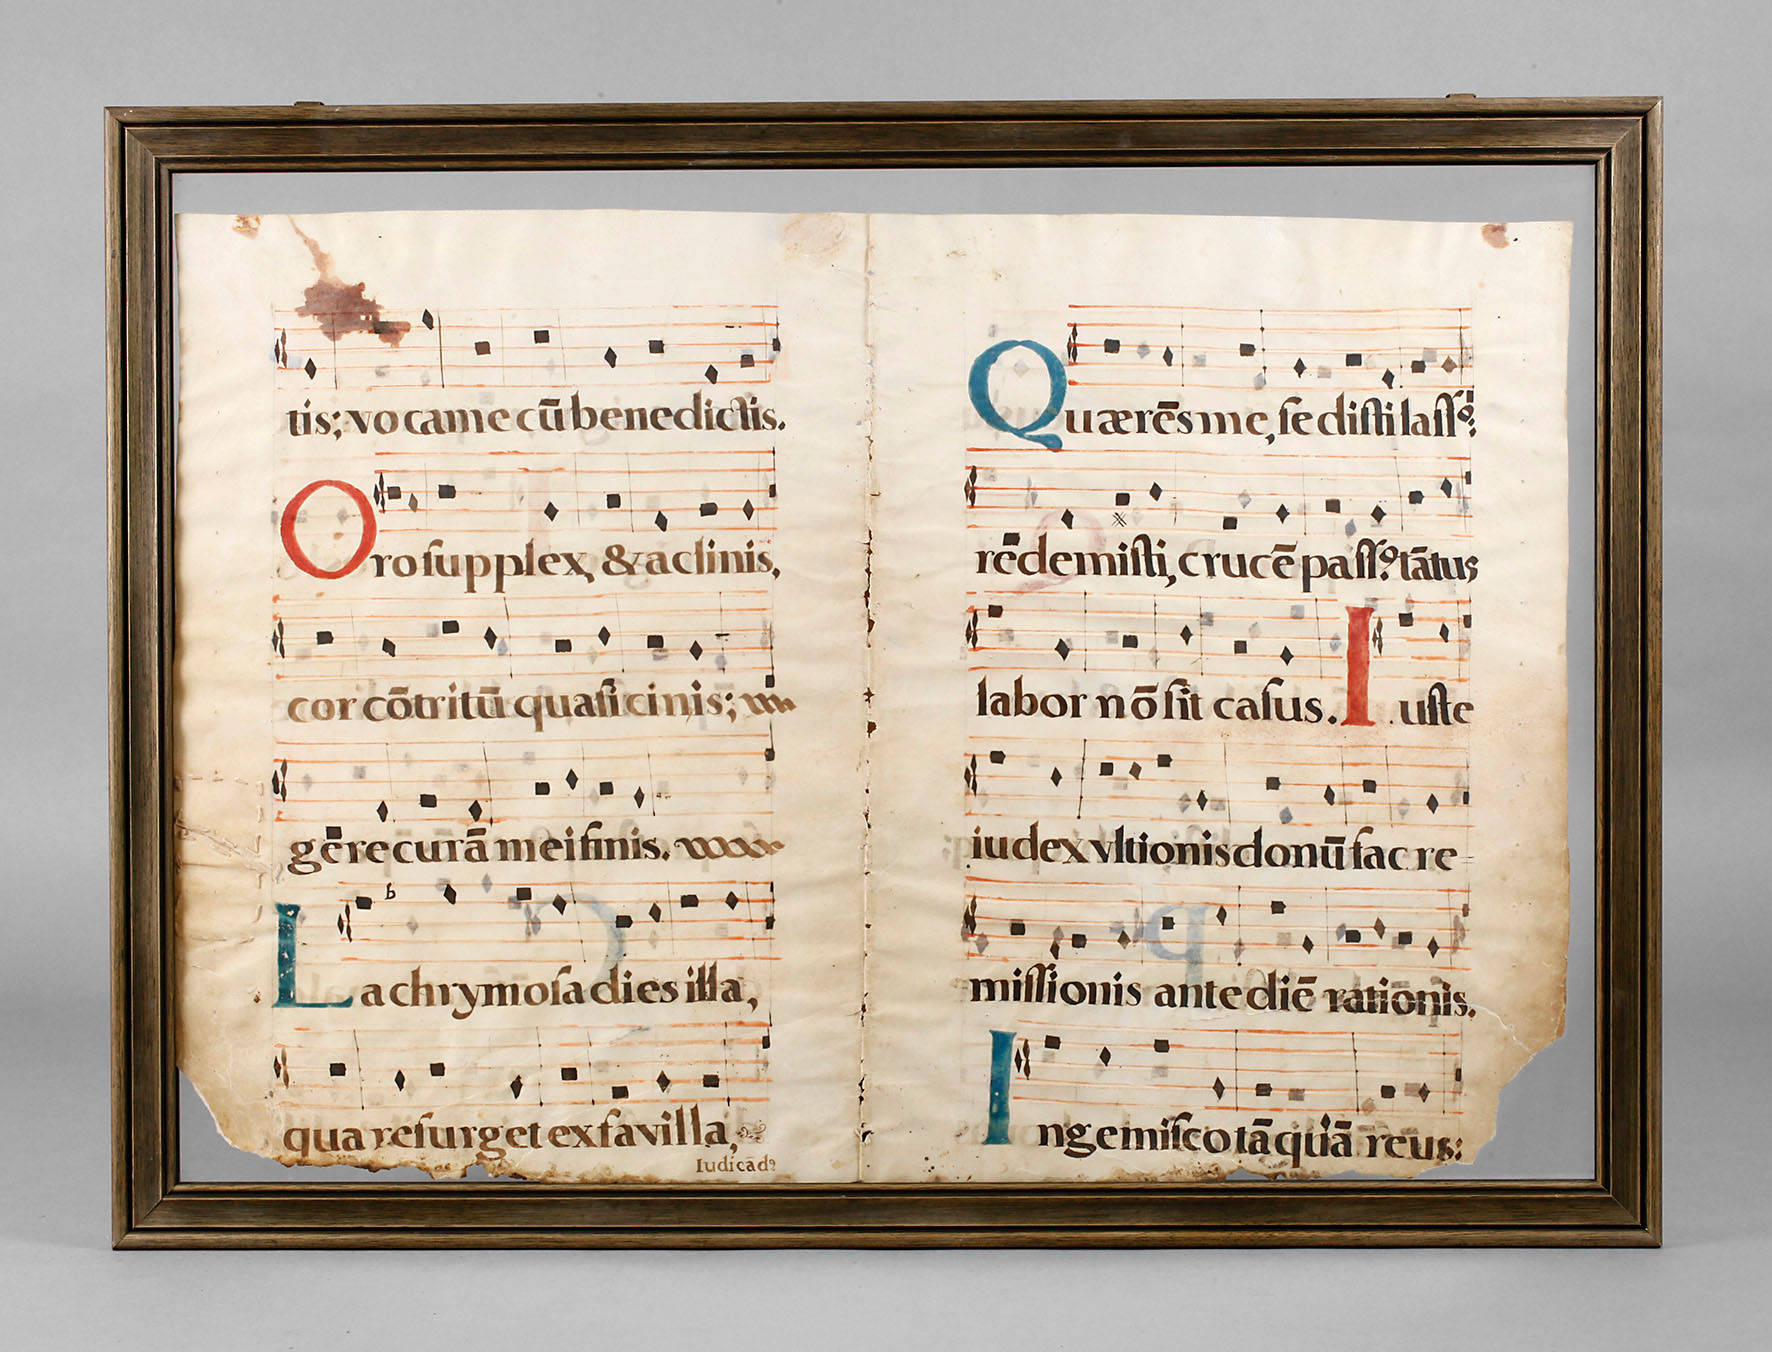 tis; voca me cū benedictis.
Oro supplex, & aclinis,
cor cōtritū quasi cinis;
gere curā mei finis.
Lachrymosa dies illa,
qua resurget ex favilla,
Iudicādꝰ
Quærēs me, sedisti lassꝰ:
redemisti, crucē passꝰ: tātus
labor nō sit casus. Iuste
iudex vltionis donū fac re-
missionis ante diē rationis.
Ingemisco tāquā reus: